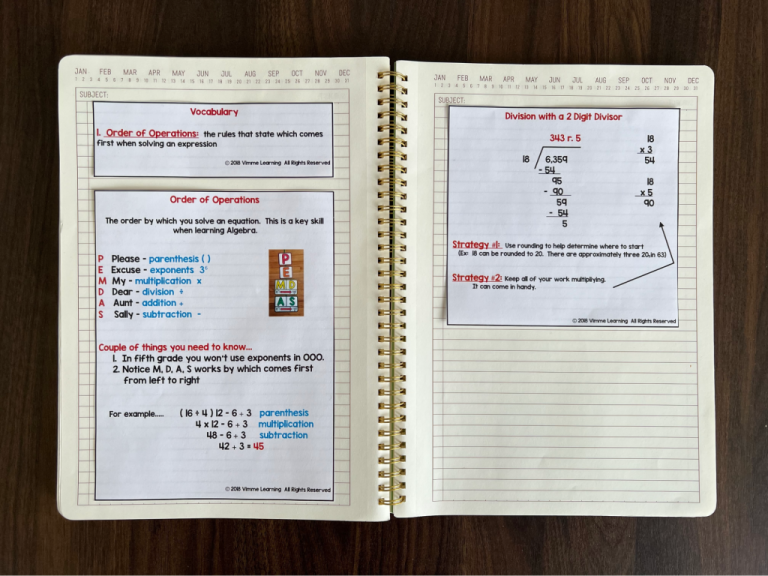 JAN FEB MAR APR MAY JUN JUL AUG SEP OCT NOV DEC
1 2 3 4 5 6 7 8 9 10 11 12 13 14 15 16 17 18 19 20 21 22 23 24 25 26 27 28 29 30 31
SUBJECT:
Vocabulary
1. Order of Operations: the rules that state which comes
first when solving an expression
© 2018 Vimme Learning All Rights Reserved
Order of Operations
The order by which you solve an equation. This is a key skill
when learning Algebra.
P Please - parenthesis ( )
E Excuse - exponents 3⁶
M My - multiplication x
D Dear - division ÷
A Aunt - addition +
S Sally - subtraction -
P
E
MD
AS
Couple of things you need to know...
1. In fifth grade you won't use exponents in OOO.
2. Notice M, D, A, S works by which comes first
from left to right
For example..... (16 ÷ 4) 12 - 6 + 3 parenthesis
4 x 12 - 6 + 3 multiplication
48 - 6 + 3 subtraction
42 + 3 = 45
© 2018 Vimme Learning All Rights Reserved
JAN FEB MAR APR MAY JUN JUL AUG SEP OCT NOV DEC
1 2 3 4 5 6 7 8 9 10 11 12 13 14 15 16 17 18 19 20 21 22 23 24 25 26 27 28 29 30 31
SUBJECT:
Division with a 2 Digit Divisor
343 r. 5 18
18 6,359 x 3
- 54 54
95 18
- 90 x 5
59 90
- 54
5
Strategy #1: Use rounding to help determine where to start
(Ex: 18 can be rounded to 20. There are approximately three 20s in 63)
Strategy #2: Keep all of your work multiplying.
It can come in handy.
© 2018 Vimme Learning All Rights Reserved